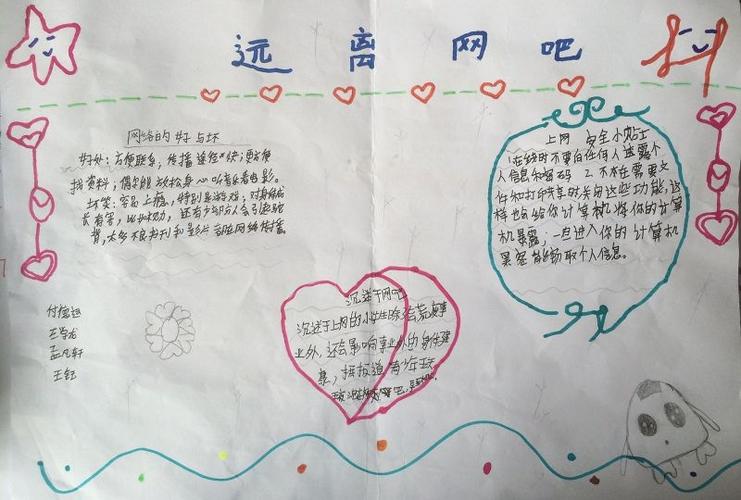 远离网吧
网络的好与坏
好处：方便联系，传播途径快；更方便
找资料；偶尔能放松身心听音乐看电影。
坏处：容易上瘾，特别是游戏；对身体成
长有害，比如视力，还有少部分人会引起驼
背，太多不良书刊和影片
付
王
孟凡轩
王钰
沉迷于网吧
沉迷于上网的小学生除会荒废
业外，还会影响事业外的身体健
康，据报道青少年
上网 安全小贴士
1.在线时不要向任何人透露个
人信息和密码 2.不存在需要文
件和打印共享时关闭这些功能，这
样也会给你计算机将你的计算
机暴露，一旦进入你的计算机
黑客能窃取个人信息。